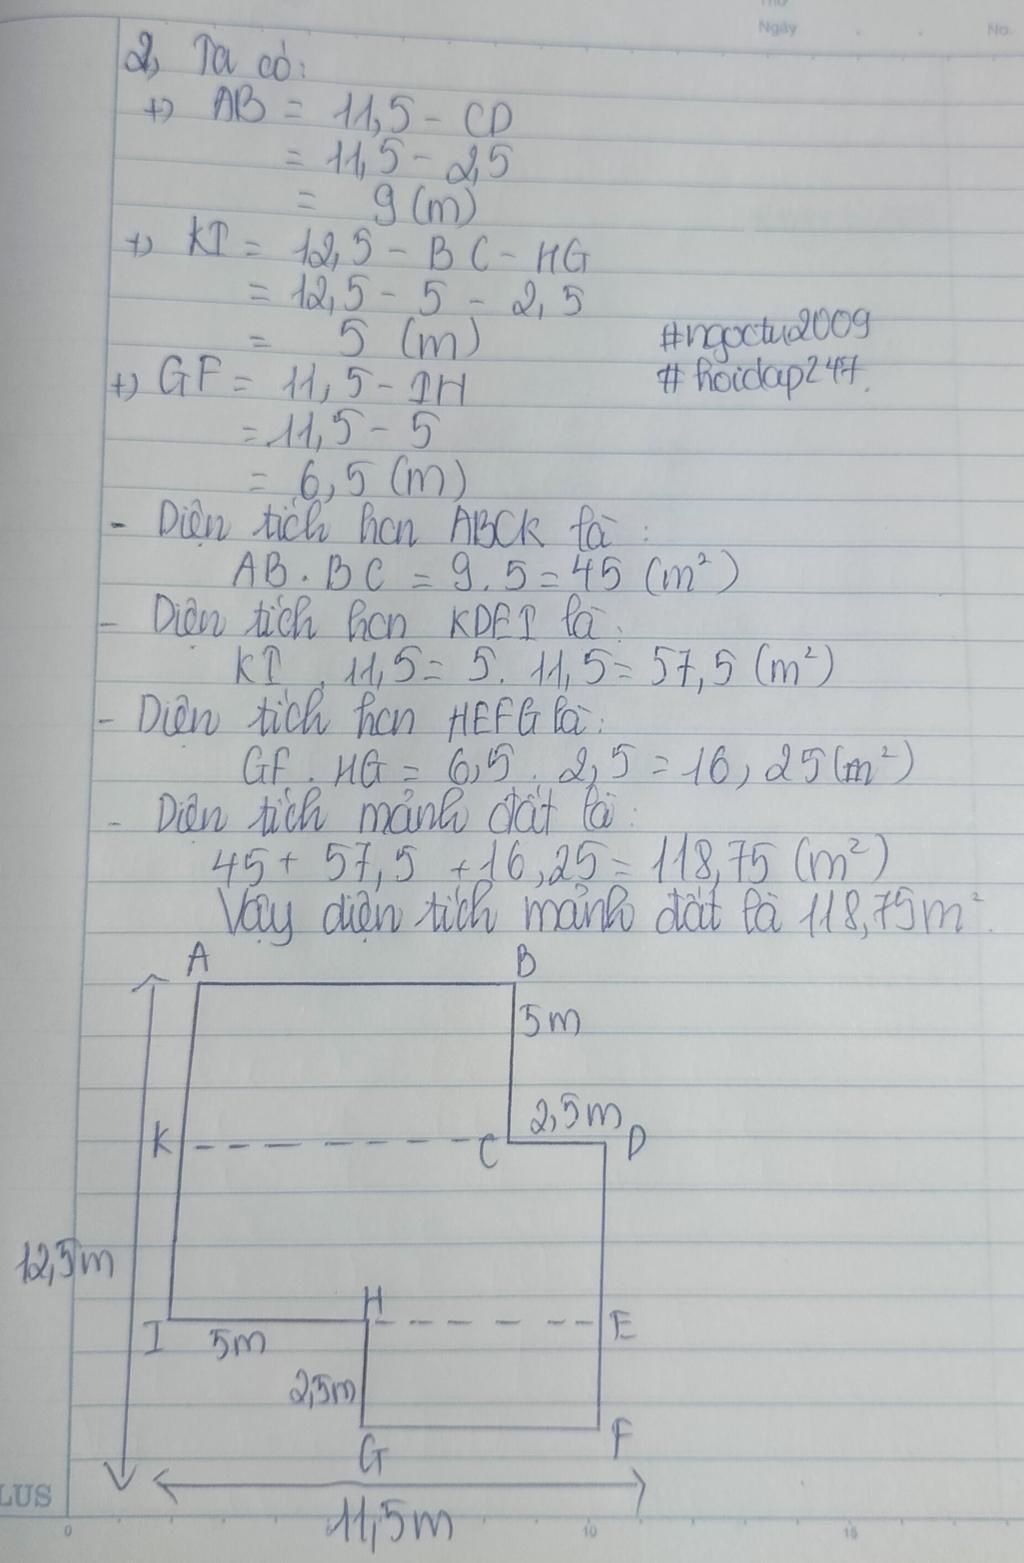 Thứ
Ngày No.
2, Ta có:
+) AB = 11,5 - CD
= 11,5 - 2,5
= 9 (m)
+) KI = 12,5 - BC - HG
= 12,5 - 5 - 2,5
= 5 (m)
#ngoctu2009
+) GF = 11,5 - IH
#hoidap247.
= 11,5 - 5
= 6,5 (m)
- Diện tích hcn ABCK là:
AB . BC = 9 . 5 = 45 (m²)
- Diện tích hcn KDEI là:
KI . 11,5 = 5 . 11,5 = 57,5 (m²)
- Diện tích hcn HEFG là:
GF . HG = 6,5 . 2,5 = 16,25 (m²)
- Diện tích mảnh đất là:
45 + 57,5 + 16,25 = 118,75 (m²)
Vậy diện tích mảnh đất là 118,75m².
A B
5m
2,5m
K C D
12,5m
H
I 5m E
2,5m
G F
LUS
11,5m
0 10 15